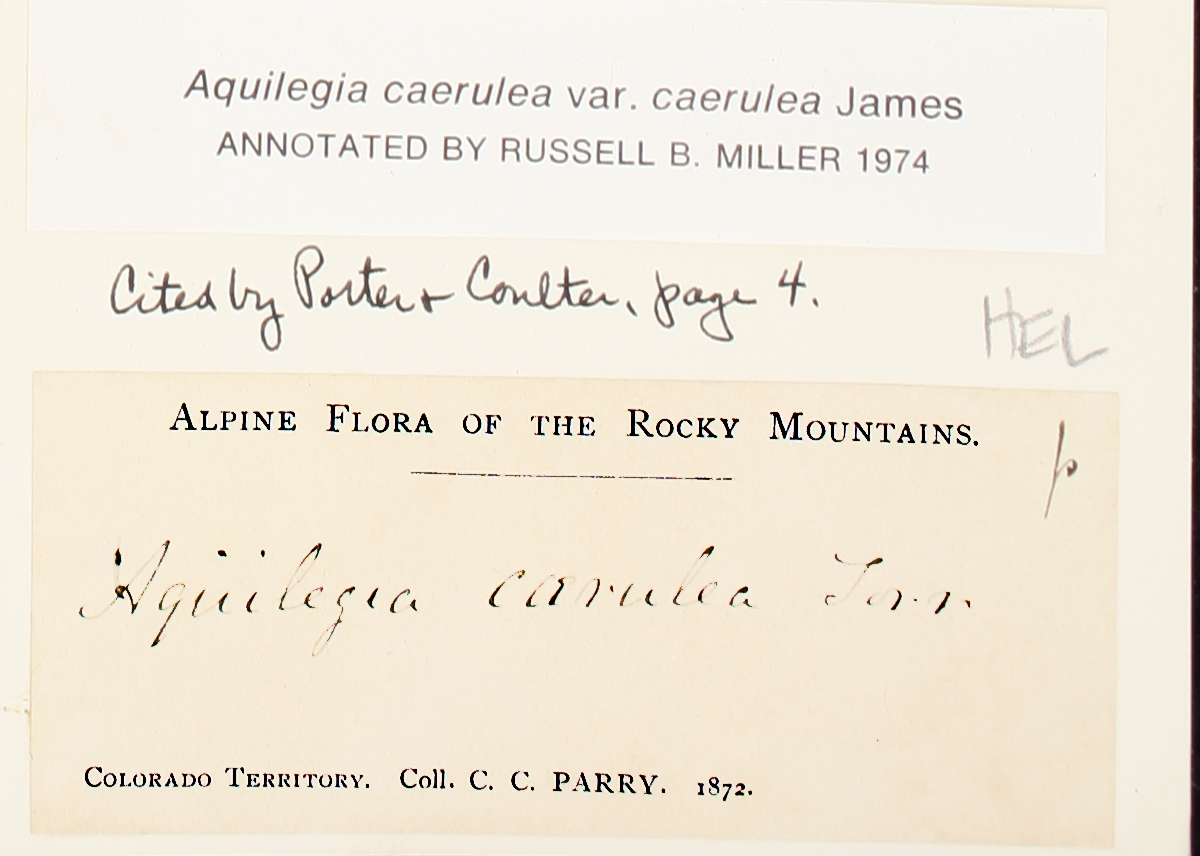 Aquilegia caerulea var. caerulea James
ANNOTATED BY RUSSELL B. MILLER 1974
Cited by Porter & Coulter, page 4.
HEL
ALPINE FLORA OF THE ROCKY MOUNTAINS.
p
Aquilegia cærulea Torr.
COLORADO TERRITORY. Coll. C. C. PARRY. 1872.